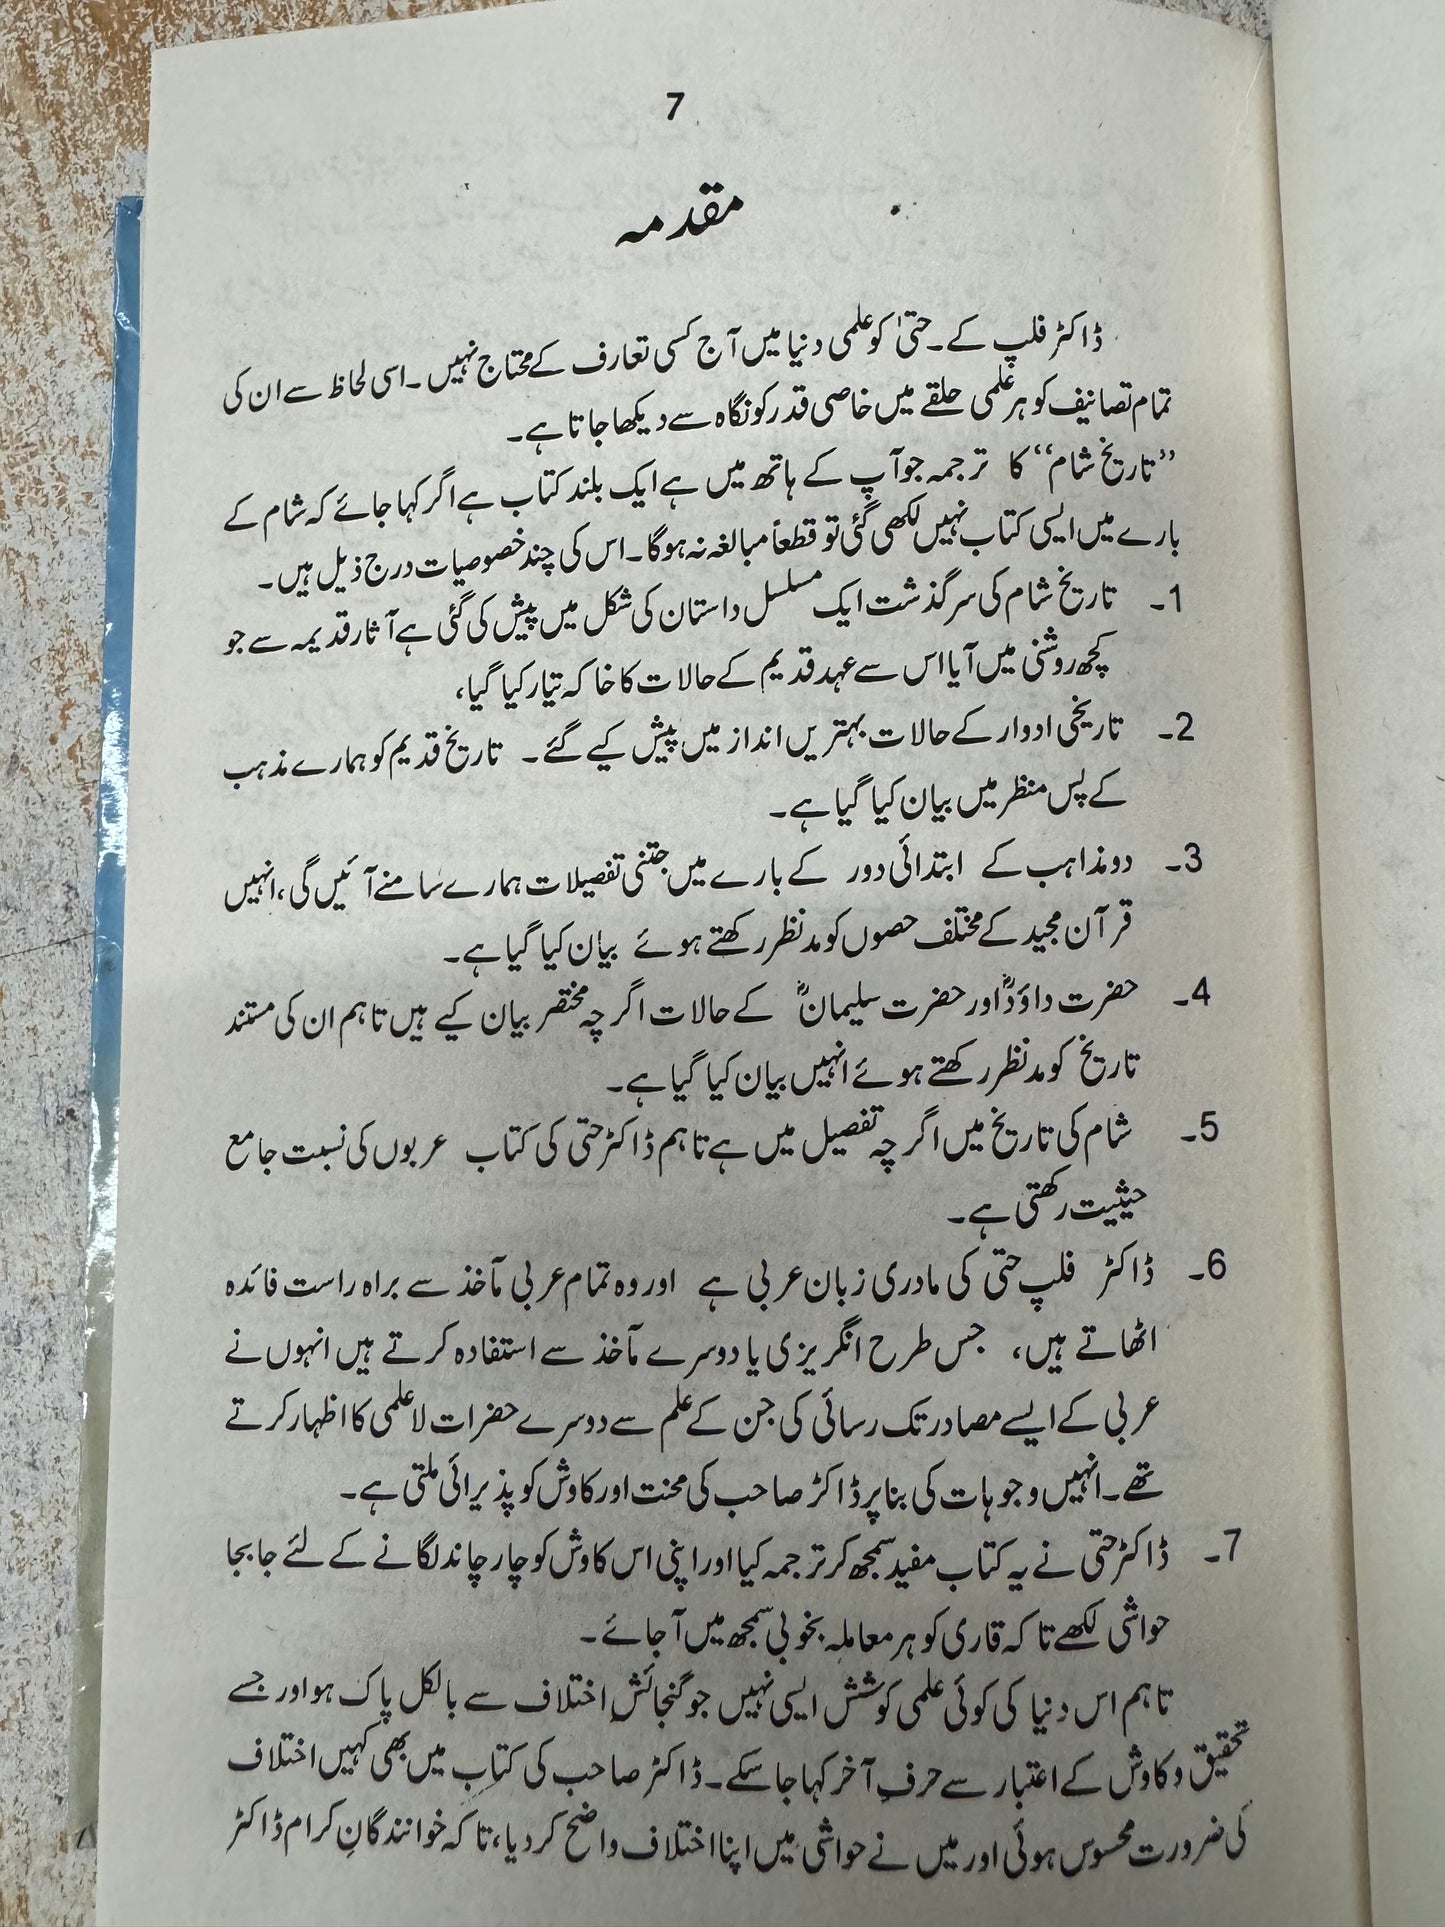 7
مقدمہ
ڈاکٹر فلپ کے۔ حتیٰ کو علمی دنیا میں آج کسی تعارف کے محتاج نہیں۔ اسی لحاظ سے ان کی
تمام تصانیف کو ہر علمی حلقے میں خاصی قدر کو نگاہ سے دیکھا جاتا ہے۔
”تاریخ شام“ کا ترجمہ جو آپ کے ہاتھ میں ہے ایک بلند کتاب ہے اگر کہا جائے کہ شام کے
بارے میں ایسی کتاب نہیں لکھی گئی تو قطعاً مبالغہ نہ ہوگا۔ اس کی چند خصوصیات درج ذیل ہیں۔
1۔ تاریخ شام کی سرگذشت ایک مسلسل داستان کی شکل میں پیش کی گئی ہے آثار قدیمہ سے جو
کچھ روشنی میں آیا اس سے عہد قدیم کے حالات کا خاکہ تیار کیا گیا،
2۔ تاریخی ادوار کے حالات بہتریں انداز میں پیش کیے گئے۔ تاریخ قدیم کو ہمارے مذہب
کے پس منظر میں بیان کیا گیا ہے۔
3۔ دو مذاہب کے ابتدائی دور کے بارے میں جتنی تفصیلات ہمارے سامنے آئیں گی، انہیں
قرآن مجید کے مختلف حصوں کو مدنظر رکھتے ہوئے بیان کیا گیا ہے۔
4۔ حضرت داؤدؑ اور حضرت سلیمانؑ کے حالات اگرچہ مختصر بیان کیے ہیں تاہم ان کی مستند
تاریخ کو مدنظر رکھتے ہوئے انہیں بیان کیا گیا ہے۔
5۔ شام کی تاریخ میں اگرچہ تفصیل میں ہے تاہم ڈاکٹر حتی کی کتاب عربوں کی نسبت جامع
حیثیت رکھتی ہے۔
6۔ ڈاکٹر فلپ حتی کی مادری زبان عربی ہے اور وہ تمام عربی مآخذ سے براہ راست فائدہ
اٹھاتے ہیں، جس طرح انگریزی یا دوسرے مآخذ سے استفادہ کرتے ہیں انہوں نے
عربی کے ایسے مصادر تک رسائی کی جن کے علم سے دوسرے حضرات لاعلمی کا اظہار کرتے
تھے۔ انہیں وجوہات کی بنا پر ڈاکٹر صاحب کی محنت اور کاوش کو پذیرائی ملتی ہے۔
7۔ ڈاکٹر حتی نے یہ کتاب مفید سمجھ کر ترجمہ کیا اور اپنی اس کاوش کو چار چاند لگانے کے لئے جابجا
حواشی لکھے تاکہ قاری کو ہر معاملہ بخوبی سمجھ میں آ جائے۔
تاہم اس دنیا کی کوئی علمی کوشش ایسی نہیں جو گنجائشِ اختلاف سے بالکل پاک ہو اور جسے
تحقیق و کاوش کے اعتبار سے حرفِ آخر کہا جا سکے۔ ڈاکٹر صاحب کی کتاب میں بھی کہیں اختلاف
کی ضرورت محسوس ہوئی اور میں نے حواشی میں اپنا اختلاف واضح کر دیا، تاکہ خوانندگانِ کرام ڈاکٹر